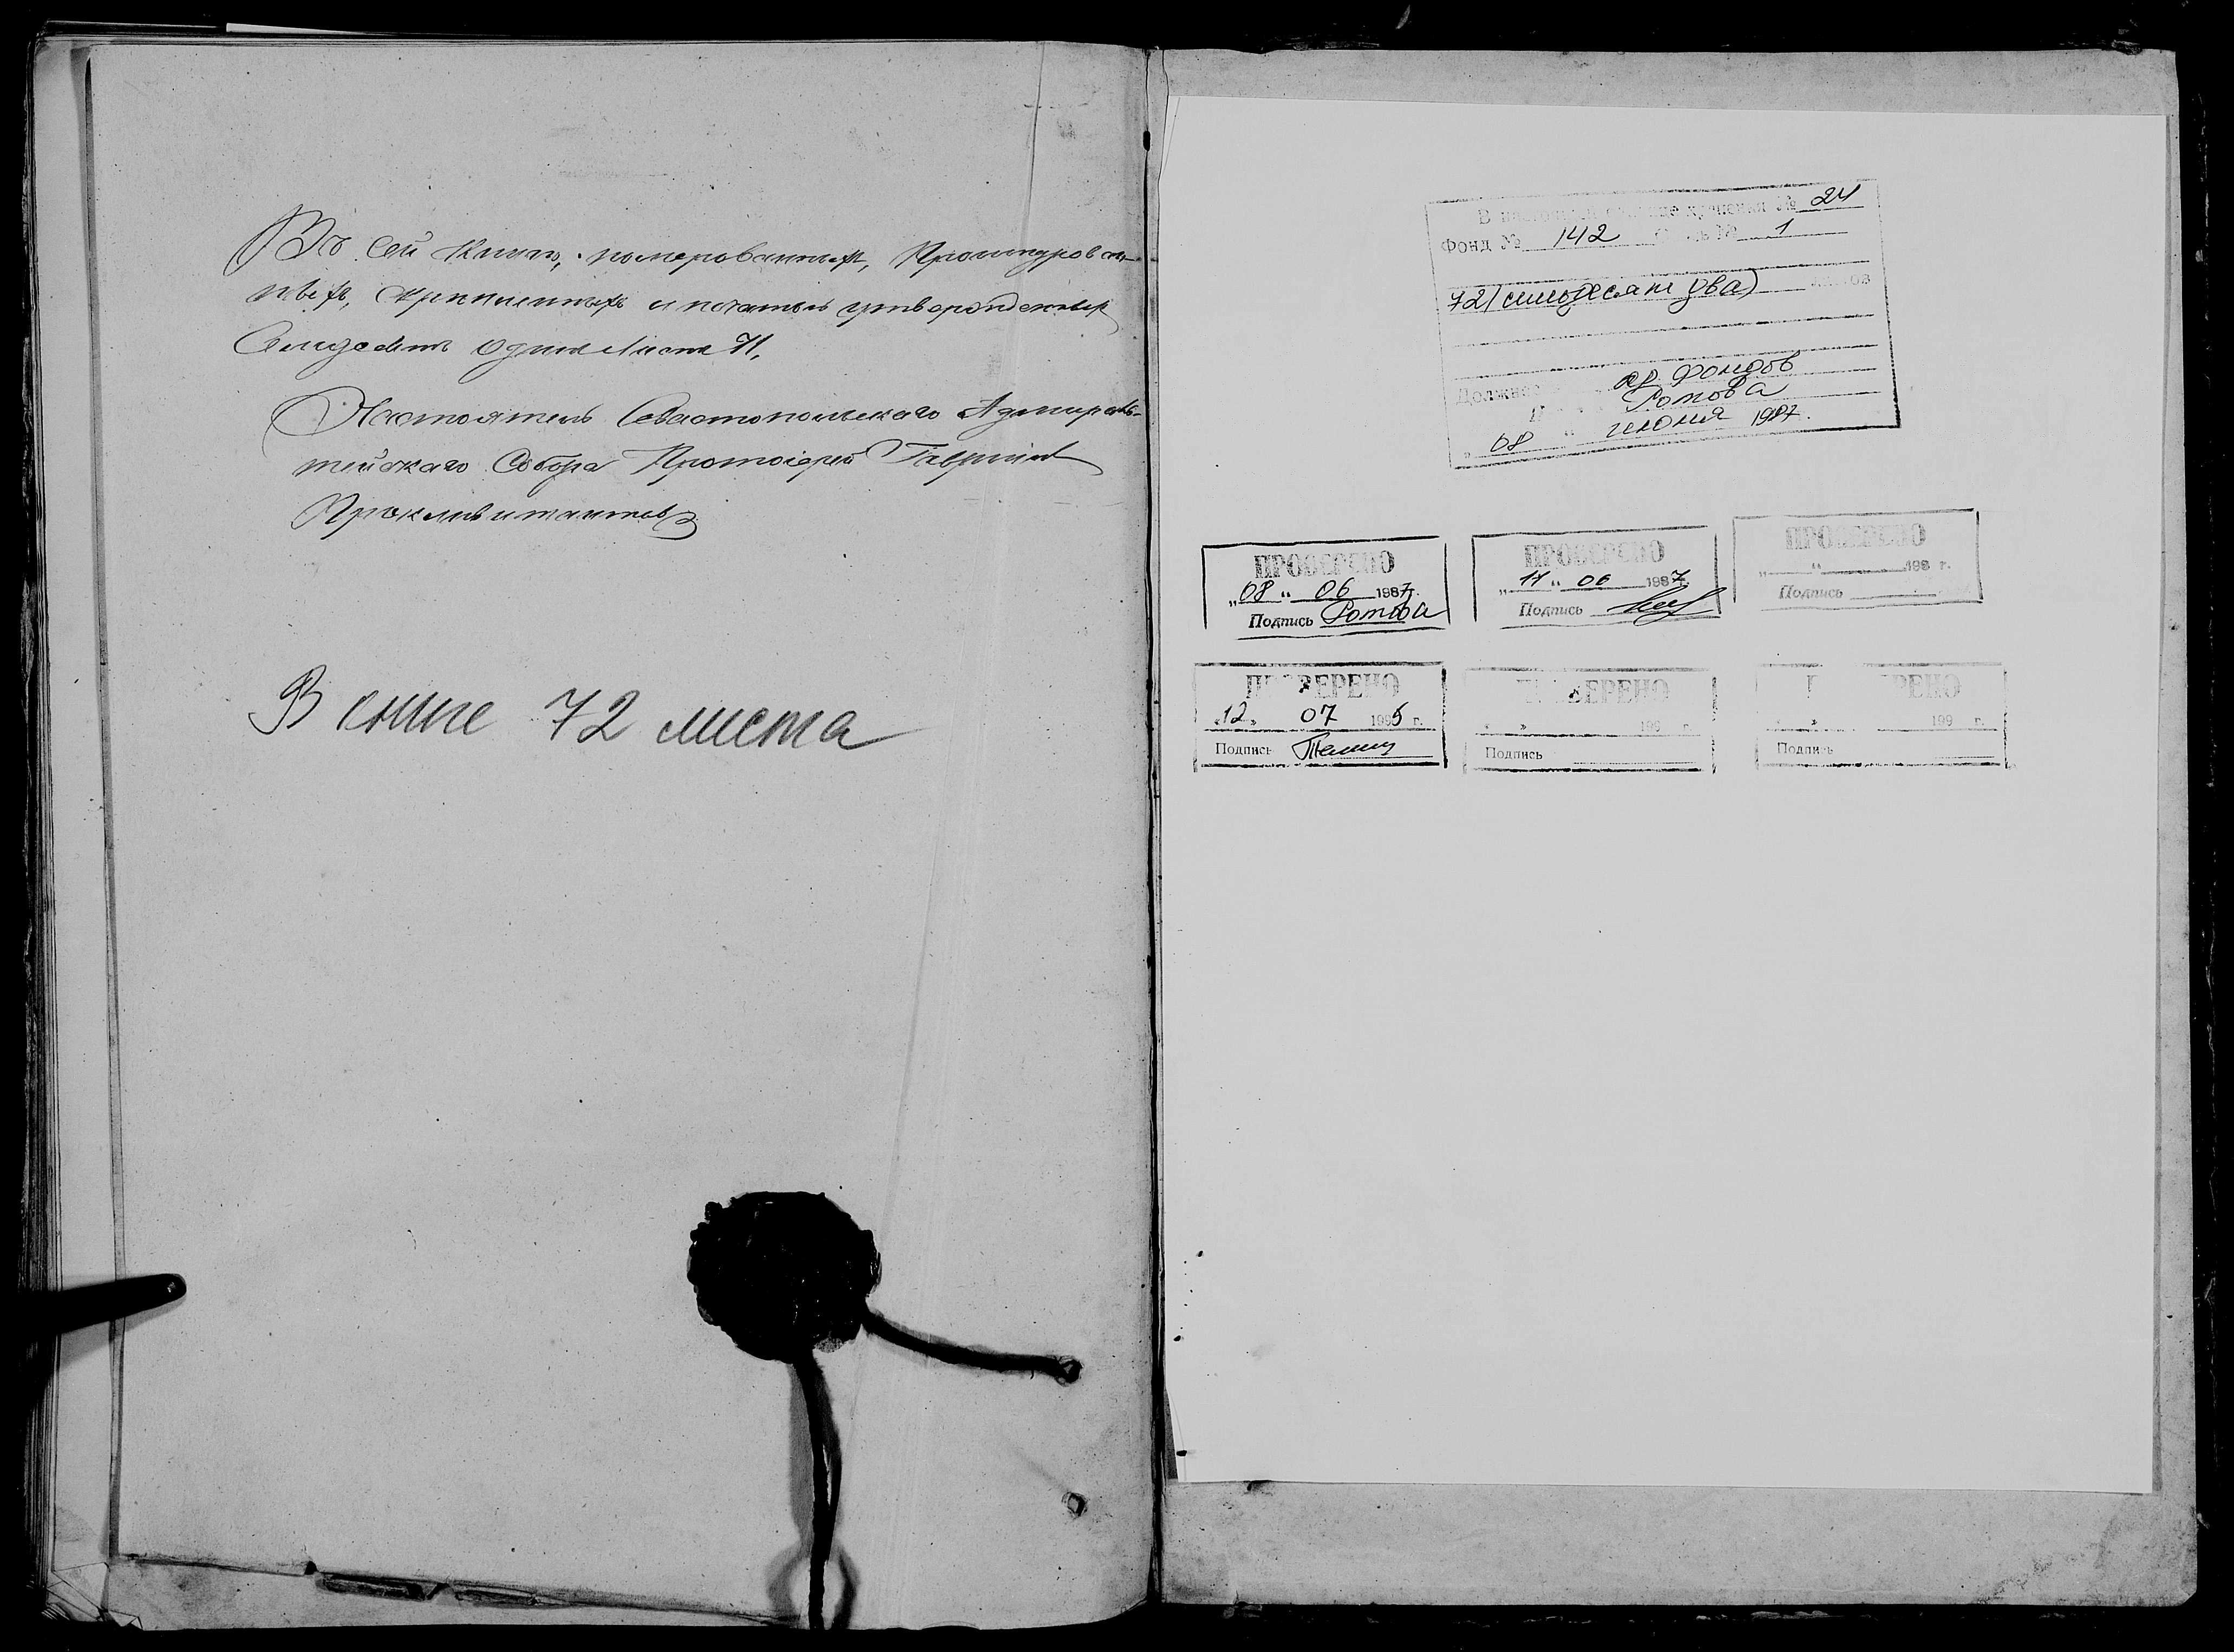 Въ сей книгѣ, номерованныхъ, прошнурован-
ныхъ, скрепленныхъ и печатью утвержденныхъ
Семдесятъ одинъ листъ 71.
Настоятель Севастопольскаго Адмирал-
тейскаго Собора Протоіерей Гавріилъ
В книге 72 листа
В единице хранения № 24
Фонд № 142 № 1
72 (семьдесят два) листов
хр. фондов
Ротова
„08“ июня 1987.
ПРОВЕРЕНО
„08“ 06 1987г.
Подпись Ротова
ПРОВЕРЕНО
„11“ 06 1987г.
Подпись
ПРОВЕРЕНО
„ “ 198 г.
Подпись
ПРОВЕРЕНО
«12» 07 1995 г.
Подпись
ПРОВЕРЕНО
« » 199 г.
Подпись
ПРОВЕРЕНО
« » 199 г.
Подпись